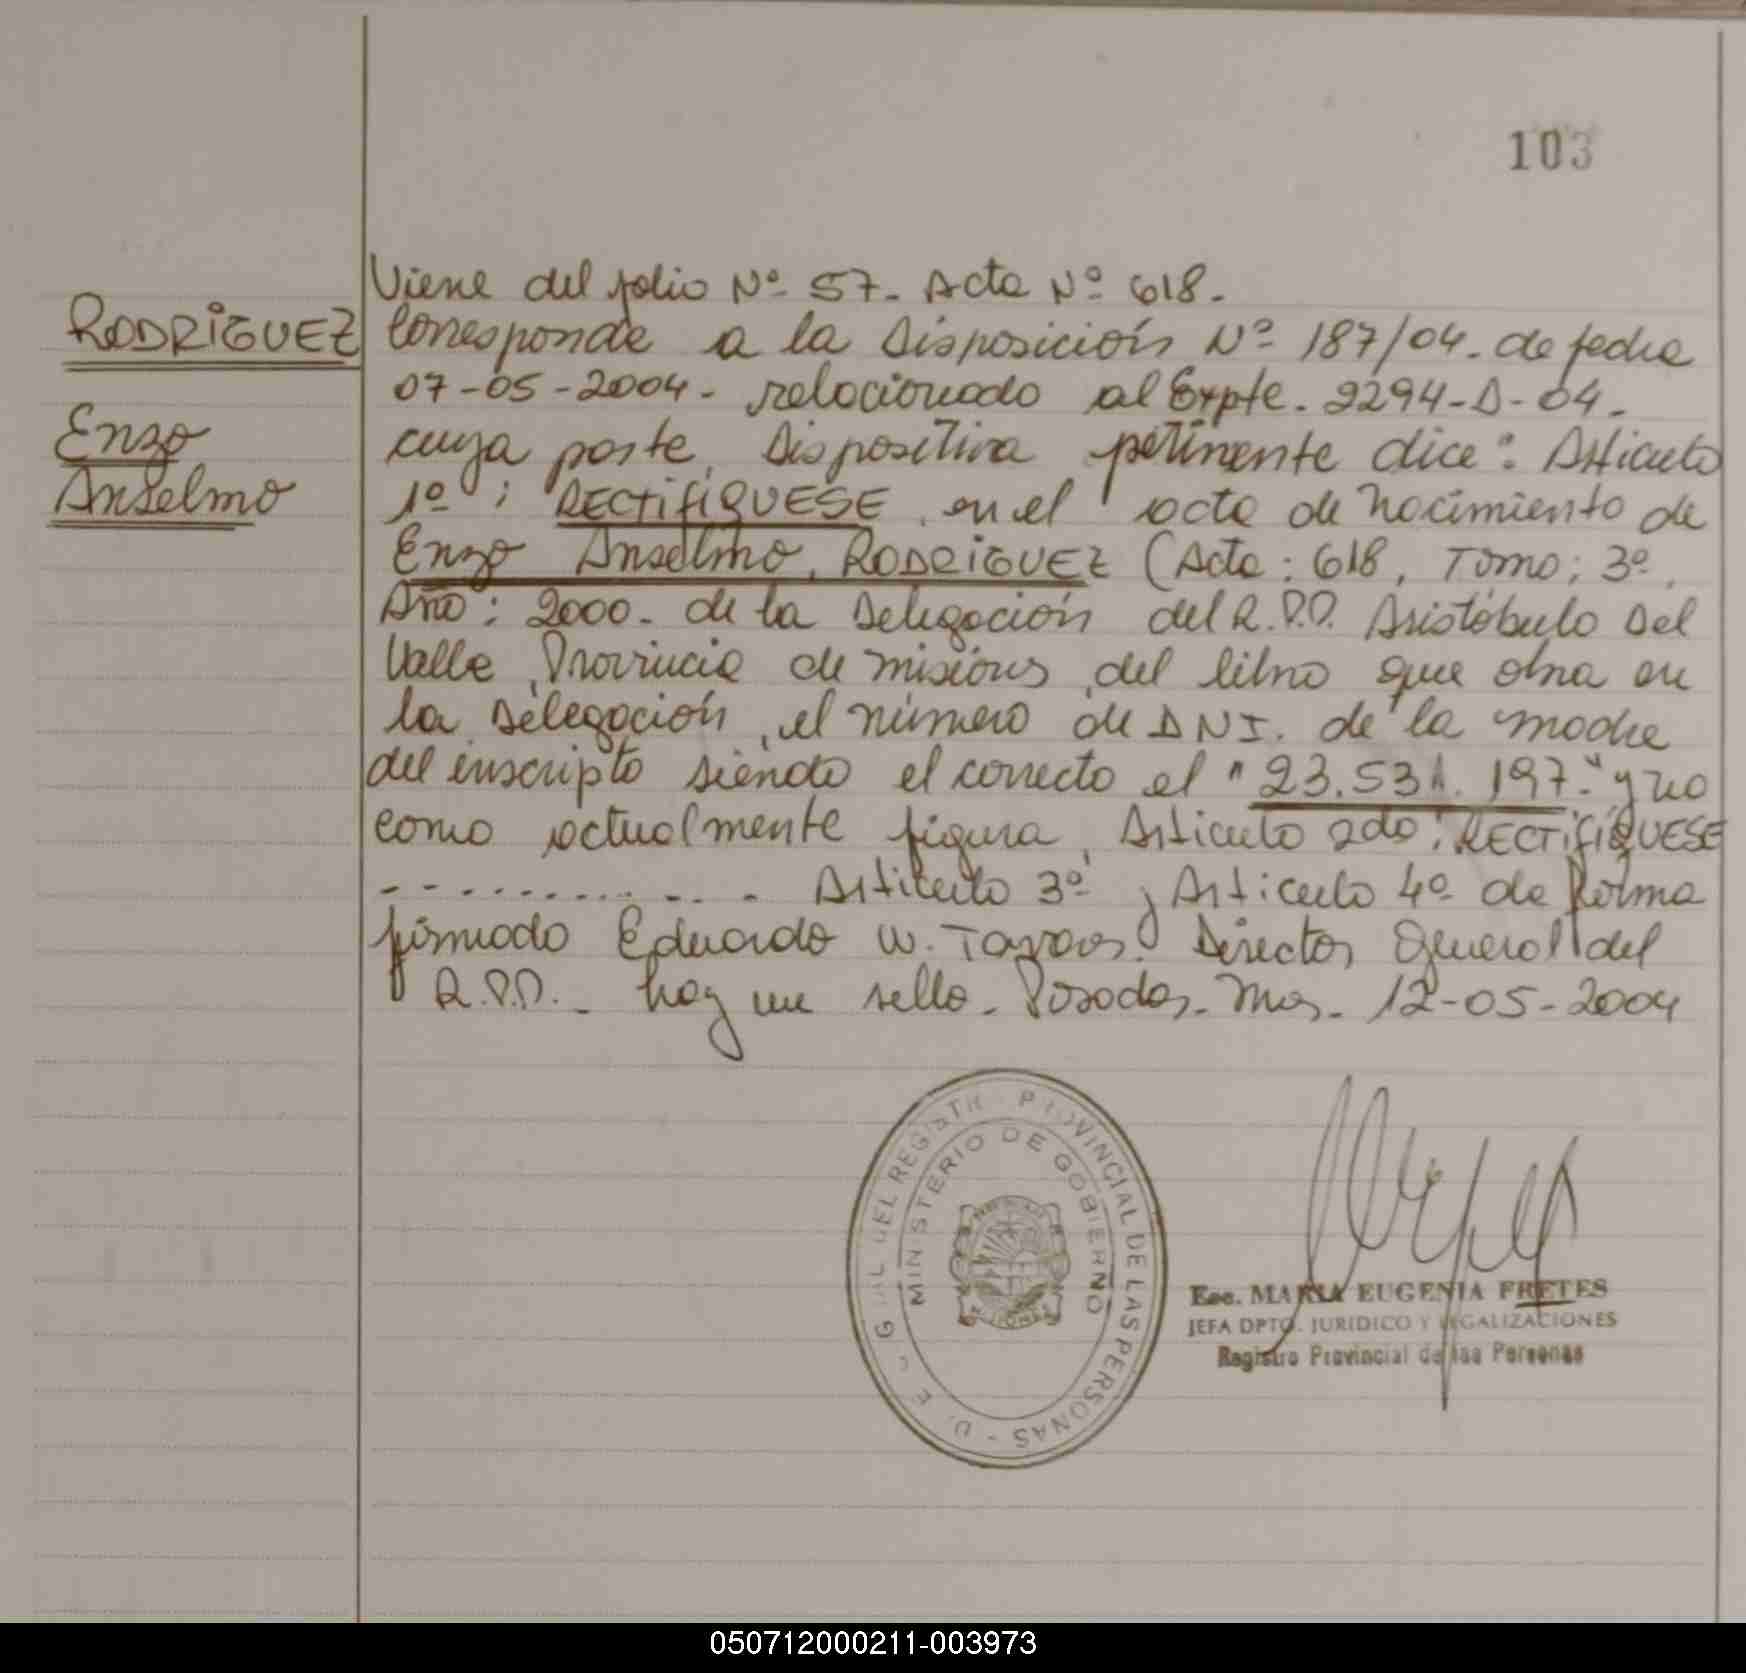 103
Viene del folio Nº 57. Acta Nº 618.
RODRIGUEZ
Enzo
Anselmo
Corresponde a la Disposición Nº 187/04. de fecha
07-05-2004. relacionado al Expte. 2294-D-04.
cuya parte Dispositiva pertinente dice: Articulo
1º: RECTIFIQUESE en el acta de nacimiento de
Enzo Anselmo RODRIGUEZ (Acta: 618, Tomo: 3º,
Año: 2000. de la Delegación del R.P.P. Aristóbulo Del
Valle, Provincia de Misiones, del libro que obra en
la Delegación, el número de DNI. de la madre
del inscripto siendo el correcto el "23.531.197." y no
como actualmente figura, Articulo 2do: RECTIFIQUESE
- - - - - - - - - - - - - Articulo 3º y Articulo 4º de forma
firmado Eduardo W. Director General del
R.P.P. - hay un sello. Posadas. Mnes. 12-05-2004
PROVINCIAL DE LAS PERSONAS
MINISTERIO DE GOBIERNO
Esc. MARIA EUGENIA FRETES
JEFA DPTO. JURIDICO Y LEGALIZACIONES
Registro Provincial de las Personas
050712000211-003973